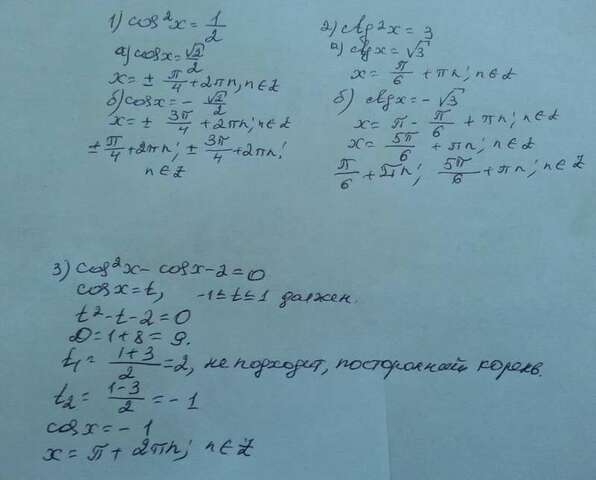 1) cos²x = 1/2
a) cosx = √2/2
x = ± π/4 + 2πn, n∈Z
б) cosx = - √2/2
x = ± 3π/4 + 2πn; n∈Z
± π/4 + 2πn; ± 3π/4 + 2πn;
n∈Z
2) ctg²x = 3
a) ctgx = √3
x = π/6 + πn; n∈Z
б) ctgx = - √3
x = π - π/6 + πn; n∈Z
x = 5π/6 + πn; n∈Z
π/6 + πn; 5π/6 + πn; n∈Z
3) cos²x - cosx - 2 = 0
cosx = t, -1 ≤ t ≤ 1 должен.
t² - t - 2 = 0
D = 1 + 8 = 9.
t₁ = (1+3)/2 = 2, не подходит, посторонний корень.
t₂ = (1-3)/2 = -1
cosx = - 1
x = π + 2πn; n∈Z